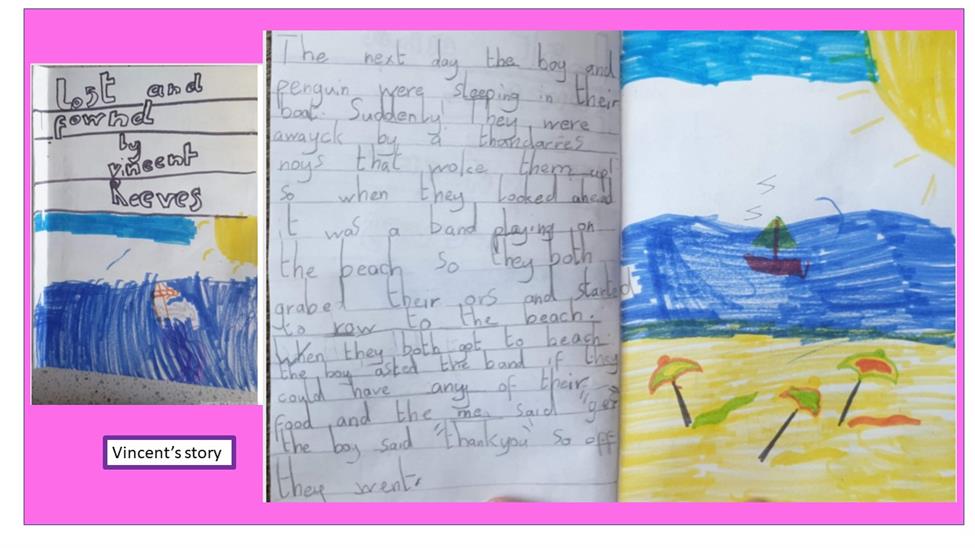 Lost and
fownd
by
vincent
Reeves
Vincent's story
The next day the boy and
penguin were sleeping in their
boat. Suddenly they were
awayck by a thandarres
noys that woke them up
so when they looked ahead
it was a band playing on
the beach so they both
grabed their ors and started
to row to the beach.
When they both got to beach
the boy asted the band if they
could have any of their
food and the men said "
the boy said "thankyou" so off
they went.